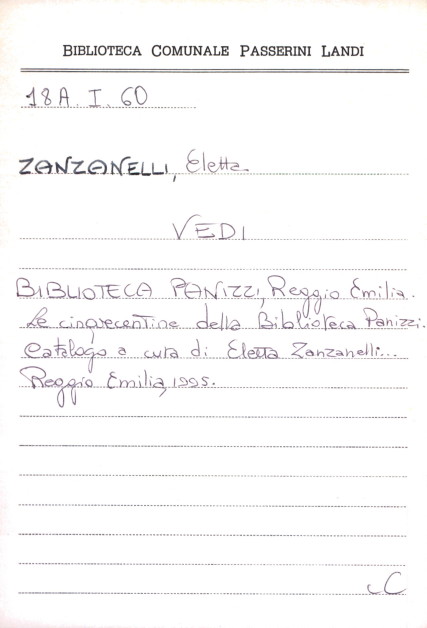 BIBLIOTECA COMUNALE PASSERINI LANDI
18A. I. 60
ZANZANELLI, Eletta
VEDI
BIBLIOTECA PANIZZI, Reggio Emilia.
Le cinquecentine della Biblioteca Panizzi.
Catalogo a cura di Eletta Zanzanelli...
Reggio Emilia, 1995.
C